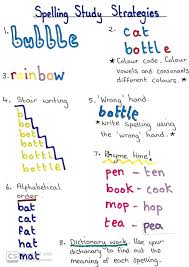 Spelling Study Strategies
1.
2. cat
bottle
* Colour code. Colour
vowels and consonants
different colours. *
3. rainbow
4. Stair writing
b
bo
bot
bott
bottl
bottle
5. 'Wrong' hand.
bottle
* Write spelling using
the 'wrong' hand. *
6. Alphabetical
order
bat
cat
fat
hat
mat
7. Rhyme time!
pen - ten
book - cook
mop - hop
tea - pea
8. Dictionary work. Use your
dictionary to find out the
meaning of each spelling.
CS